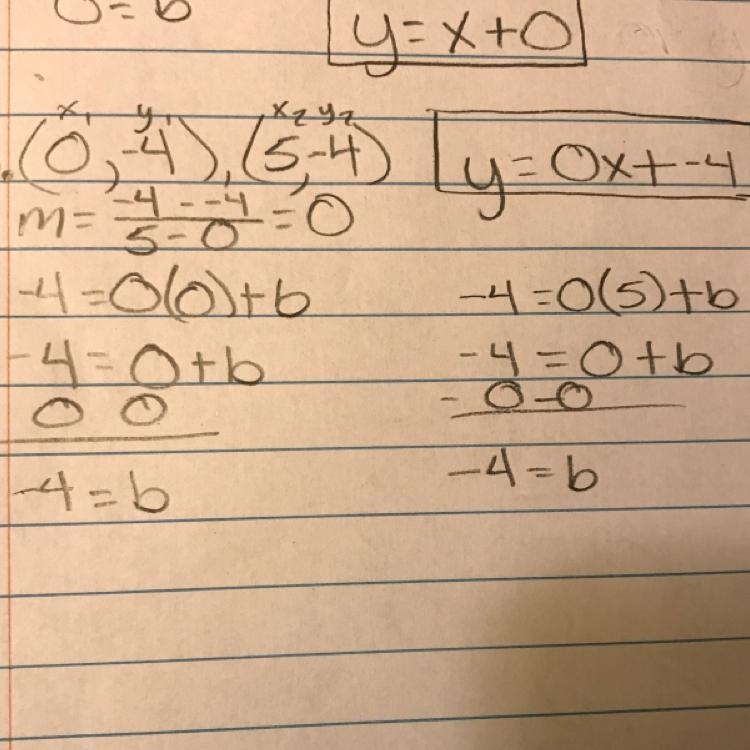 0 = b
y = x + 0
x₁ y₁ x₂ y₂
.(0, -4), (5, -4)
y = 0x + -4
m = (-4 - -4)/(5 - 0) = 0
-4 = 0(0) + b
-4 = 0 + b
0 0
-4 = b
-4 = 0(5) + b
-4 = 0 + b
- 0 - 0
-4 = b